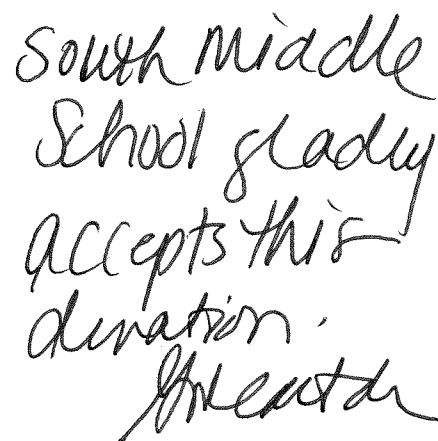 South Middle
School gladly
accepts this
donation.